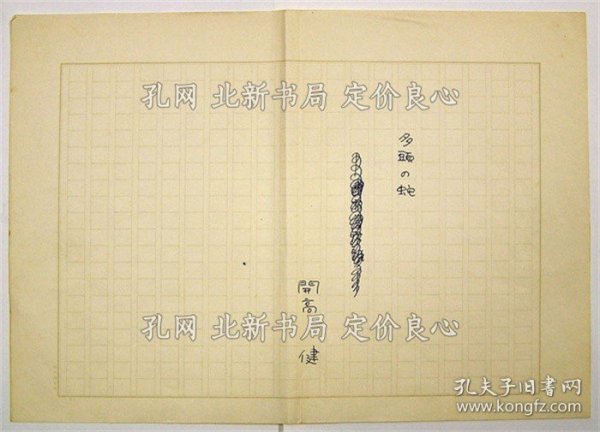 多頭の蛇
開高 健
孔网 北新书局 定价良心
孔网 北新书局 定价良心
孔夫子旧书网
www.kongfz.com